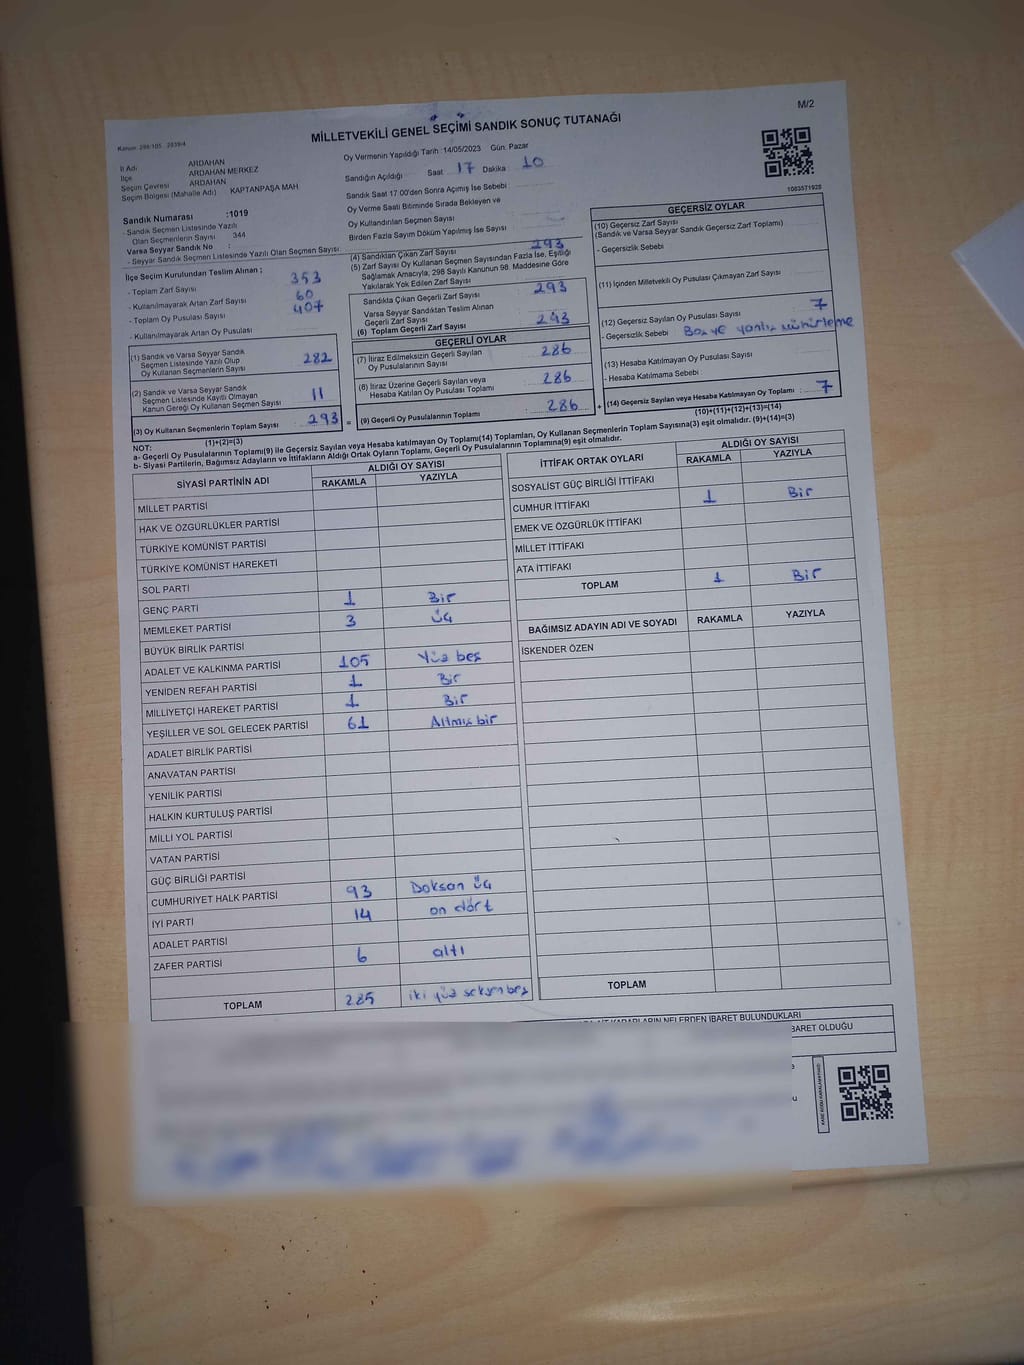 M/2
MİLLETVEKİLİ GENEL SEÇİMİ SANDIK SONUÇ TUTANAĞI
İl Adı ARDAHAN
İlçe ARDAHAN MERKEZ
Seçim Çevresi ARDAHAN
Seçim Bölgesi (Mahalle Adı) KAPTANPAŞA MAH
Sandık Numarası :1019
- Sandık Seçmen Listesinde Yazılı
Olan Seçmenlerin Sayısı 344
Varsa Seyyar Sandık No :
- Seyyar Sandık Seçmen Listesinde Yazılı Olan Seçmen Sayısı:
İlçe Seçim Kurulundan Teslim Alınan ;
- Toplam Zarf Sayısı 353
- Kullanılmayarak Artan Zarf Sayısı 60
- Toplam Oy Pusulası Sayısı 407
- Kullanılmayarak Artan Oy Pusulası
(1) Sandık ve Varsa Seyyar Sandık
Seçmen Listesinde Yazılı Olup
Oy Kullanan Seçmenlerin Sayısı 282
(2) Sandık ve Varsa Seyyar Sandık
Seçmen Listesinde Kayıtlı Olmayan
Kanun Gereği Oy Kullanan Seçmen Sayısı 11
(3) Oy Kullanan Seçmenlerin Toplam Sayısı 293 =
(1)+(2)=(3)
Oy Vermenin Yapıldığı Tarih :14/05/2023 Gün: Pazar
Sandığın Açıldığı Saat 17 Dakika : 10
Sandık Saat 17.00'den Sonra Açımış İse Sebebi
Oy Verme Saati Bitiminde Sırada Bekleyen ve
Oy Kullandırılan Seçmen Sayısı
Birden Fazla Sayım Döküm Yapılmış İse Sayısı
(4) Sandıktan Çıkan Zarf Sayısı 293
(5) Zarf Sayısı Oy Kullanan Seçmen Sayısından Fazla İse, Eşitliği
Sağlamak Amacıyla, 298 Sayılı Kanunun 98. Maddesine Göre
Yakılarak Yok Edilen Zarf Sayısı
Sandıkta Çıkan Geçerli Zarf Sayısı 293
Varsa Seyyar Sandıktan Teslim Alınan
Geçerli Zarf Sayısı
(6) Toplam Geçerli Zarf Sayısı 293
GEÇERLİ OYLAR
(7) İtiraz Edilmeksizin Geçerli Sayılan
Oy Pusulalarının Sayısı 286
(8) İtiraz Üzerine Geçerli Sayılan veya
Hesaba Katılan Oy Pusulası Toplamı 286
(9) Geçerli Oy Pusulalarının Toplamı 286 +
1083571928
GEÇERSİZ OYLAR
(10) Geçersiz Zarf Sayısı
(Sandık ve Varsa Seyyar Sandık Geçersiz Zarf Toplamı)
- Geçersizlik Sebebi
(11) İçinden Milletvekili Oy Pusulası Çıkmayan Zarf Sayısı
(12) Geçersiz Sayılan Oy Pusulası Sayısı 7
- Geçersizlik Sebebi
(13) Hesaba Katılmayan Oy Pusulası Sayısı
- Hesaba Katılmama Sebebi
(14) Geçersiz Sayılan veya Hesaba Katılmayan Oy Toplamı 7
(10)+(11)+(12)+(13)=(14)
NOT:
a- Geçerli Oy Pusulalarının Toplamı(9) ile Geçersiz Sayılan veya Hesaba katılmayan Oy Toplamı(14) Toplamları, Oy Kullanan Seçmenlerin Toplam Sayısına(3) eşit olmalıdır. (9)+(14)=(3)
b- Siyasi Partilerin, Bağımsız Adayların ve İttifakların Aldığı Ortak Oyların Toplamı, Geçerli Oy Pusulalarının Toplamına(9) eşit olmalıdır.
SİYASİ PARTİNİN ADI
ALDIĞI OY SAYISI
RAKAMLA YAZIYLA
MİLLET PARTİSİ
HAK VE ÖZGÜRLÜKLER PARTİSİ
TÜRKİYE KOMÜNİST PARTİSİ
TÜRKİYE KOMÜNİST HAREKETİ
SOL PARTİ
GENÇ PARTİ 1 Bir
MEMLEKET PARTİSİ 3 üç
BÜYÜK BİRLİK PARTİSİ
ADALET VE KALKINMA PARTİSİ 105 Yüz beş
YENİDEN REFAH PARTİSİ 1 Bir
MİLLİYETÇİ HAREKET PARTİSİ 1 Bir
YEŞİLLER VE SOL GELECEK PARTİSİ 61 Altmış bir
ADALET BİRLİK PARTİSİ
ANAVATAN PARTİSİ
YENİLİK PARTİSİ
HALKIN KURTULUŞ PARTİSİ
MİLLİ YOL PARTİSİ
VATAN PARTİSİ
GÜÇ BİRLİĞİ PARTİSİ
CUMHURİYET HALK PARTİSİ 93 Doksan üç
İYİ PARTİ 14 on dört
ADALET PARTİSİ
ZAFER PARTİSİ 6 altı
TOPLAM 285 iki yüz seksen beş
İTTİFAK ORTAK OYLARI
ALDIĞI OY SAYISI
RAKAMLA YAZIYLA
SOSYALİST GÜÇ BİRLİĞİ İTTİFAKI
CUMHUR İTTİFAKI 1 Bir
EMEK VE ÖZGÜRLÜK İTTİFAKI
MİLLET İTTİFAKI
ATA İTTİFAKI
TOPLAM 1 Bir
BAĞIMSIZ ADAYIN ADI VE SOYADI RAKAMLA YAZIYLA
İSKENDER ÖZEN
TOPLAM
NELERDEN İBARET BULUNDUKLARI
BARET OLDUĞU